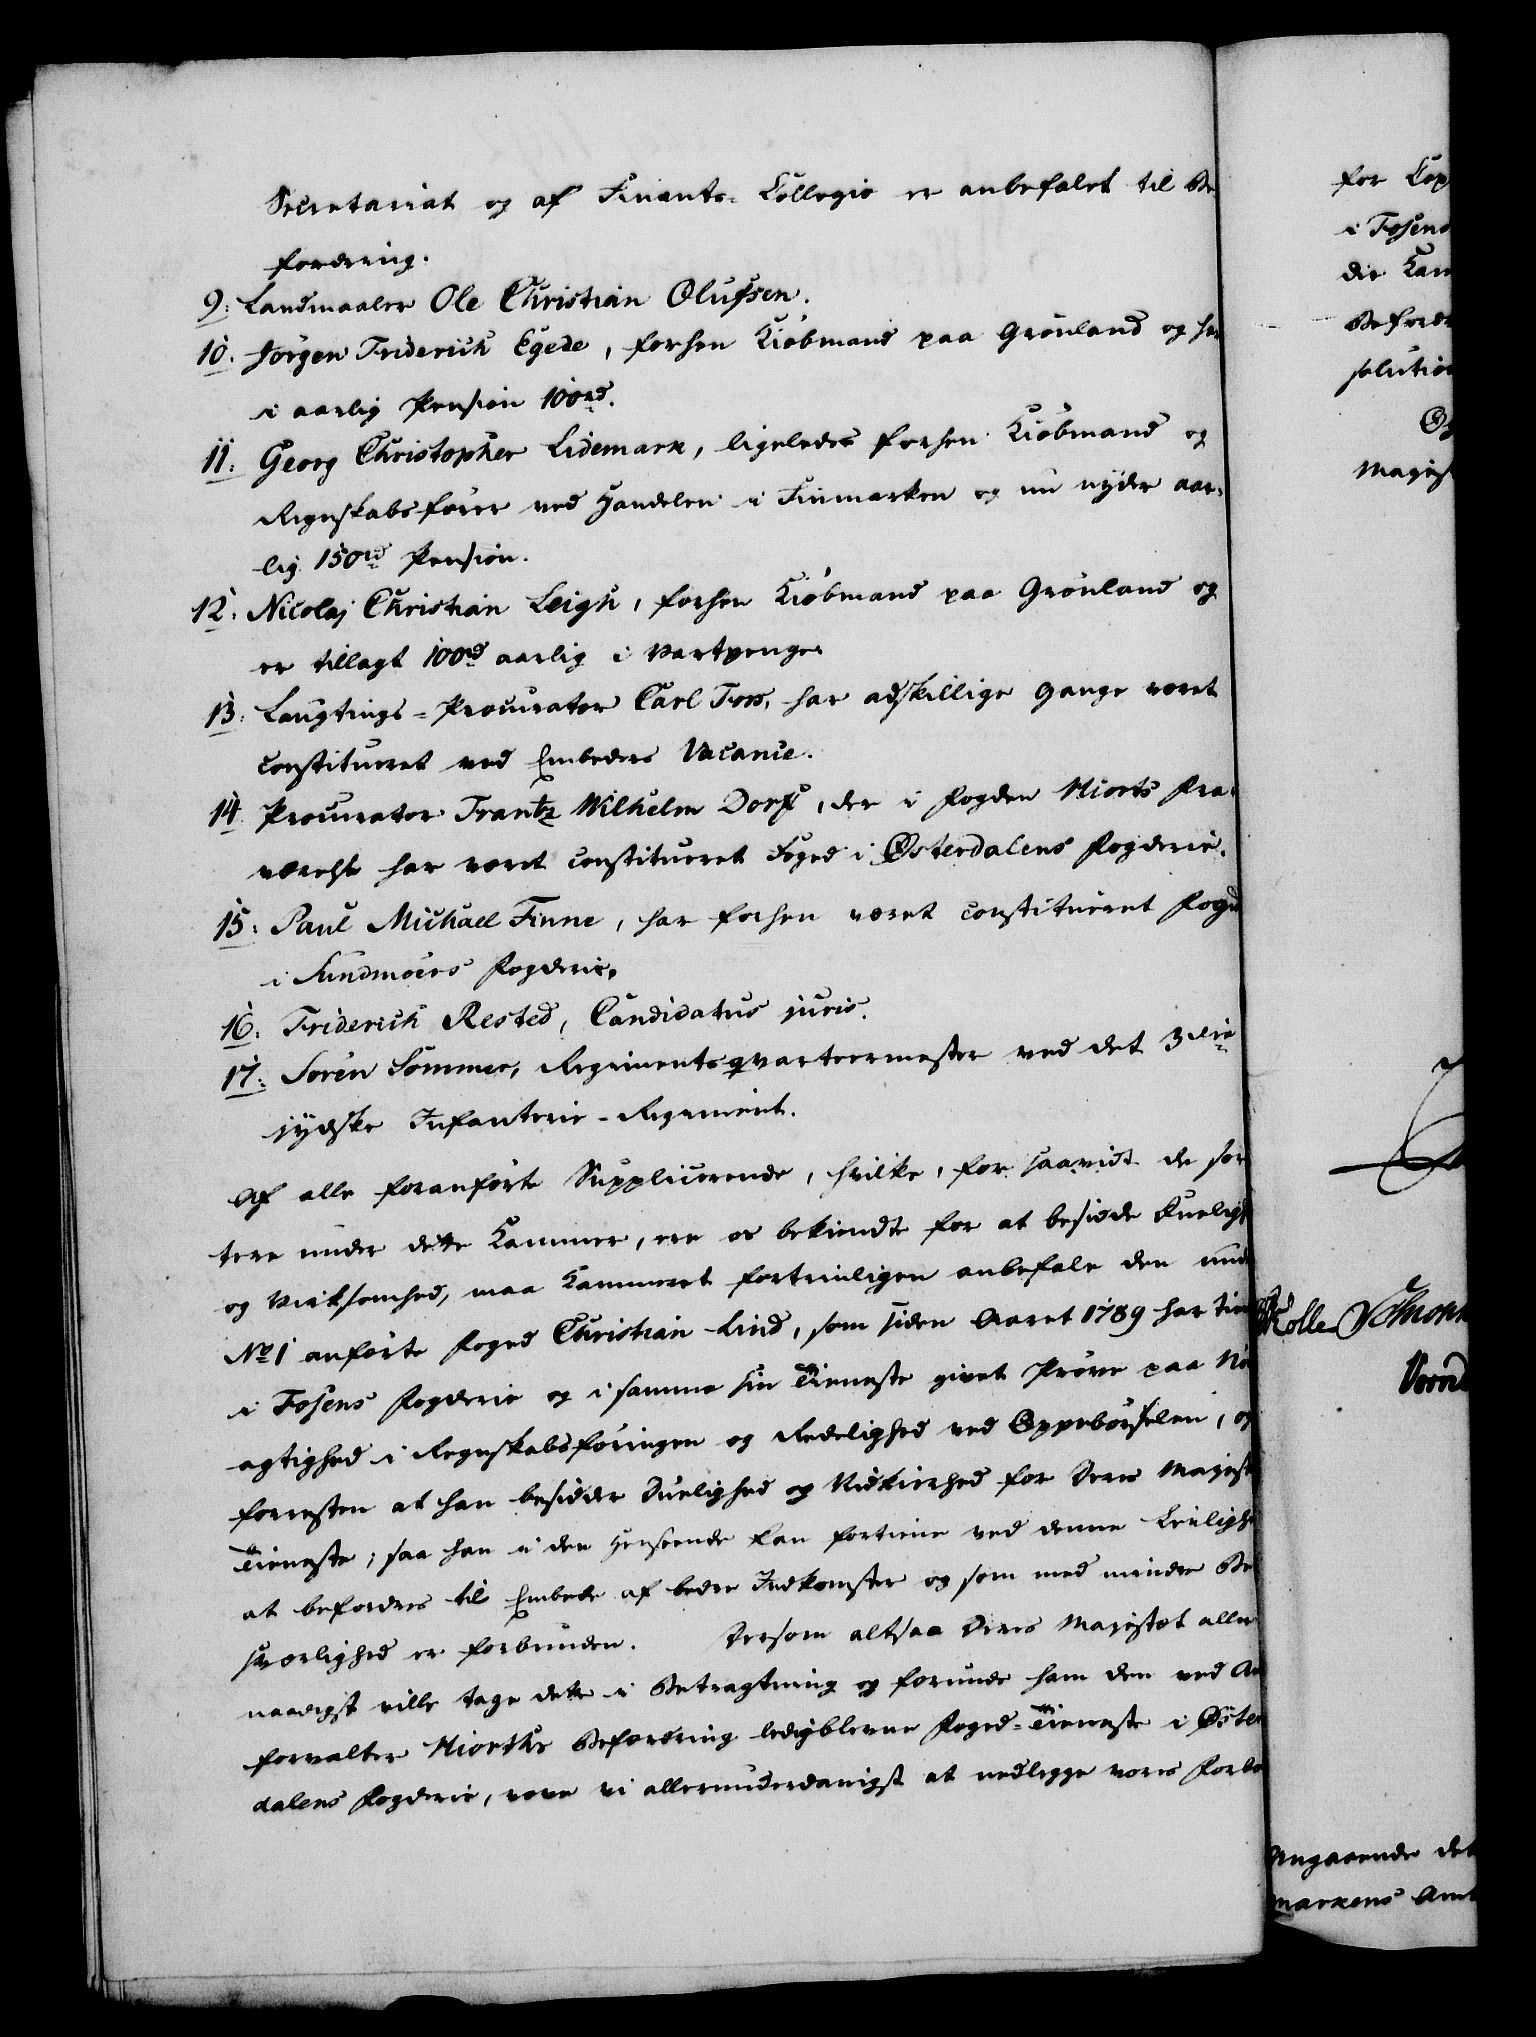 Secretariat og af Finants-Collegio er anbefalet til Be
fordring.
9. Landmaaler Ole Christian Olufsen.
10. Jørgen Friderich Egede, forhen Kiøbmand paa Grønland og har
i aarlig Pension 100rd.
11. Georg Christopher Lidemark, ligeledes forhen Kiøbmand og
Regnskabsfører ved Handelen i Finmarken og nu nyder aar-
lig 150rd Pension.
12. Nicolaj Christian Leigh, forhen Kiøbmand paa Grønland og
er tillagt 100rd aarlig i Vartpenge.
13. Laugtings-Procurator Carl Foss, har adskillige Gange været
constitueret ved Embeders Vacance.
14. Procurator Frantz Wilhelm Dorph, der i Fogden Hiorts Fra-
værelse har været constitueret Foged i Østerdalens Fogderie.
15. Paul Michael Finne, har forhen været constitueret Foged
i Sundmøers Fogderie.
16. Friderich Rested, Candidatus juris.
17. Søren Sommer, Regimentsqvarteermester ved det 3die
jydske Infanterie-Regiment.
Af alle foranførte Supplicerende, hvilke, for saavidt de sor
tere under dette Kammer, ere os bekiendte for at besidde Duelighed
og Virksomhed, maa Kammeret fortrinligen anbefale den under
No 1 anførte Foged Christian Lind, som siden Aaret 1789 har tient
i Fosens Fogderie og i samme sin Tieneste givet Prøve paa Nøi
agtighed i Regnskabsføringen og Redelighed ved Oppebørselen, og
forresten at han besidder Duelighed og Nidkierhed for Deres Majestæts
Tieneste; saa han i den Henseende kan fortiene ved denne Leilighed
at befordres til Embede af bedre Indkomster og som med mindre Be
sværlighed er forbunden. Dersom altsaa Deres Majestæt aller
naadigst ville tage dette i Betragtning og forunde ham den ved
forvalter Hiorths Befordring ledigblevne Foged-Tieneste i Øster
dalens Fogderie, vove vi allerunderdanigst at nedlegge vores Forbe
for Cop
i Fosens
die Kam
Befordr
solution
Majest
Angaaende det
markens Amt